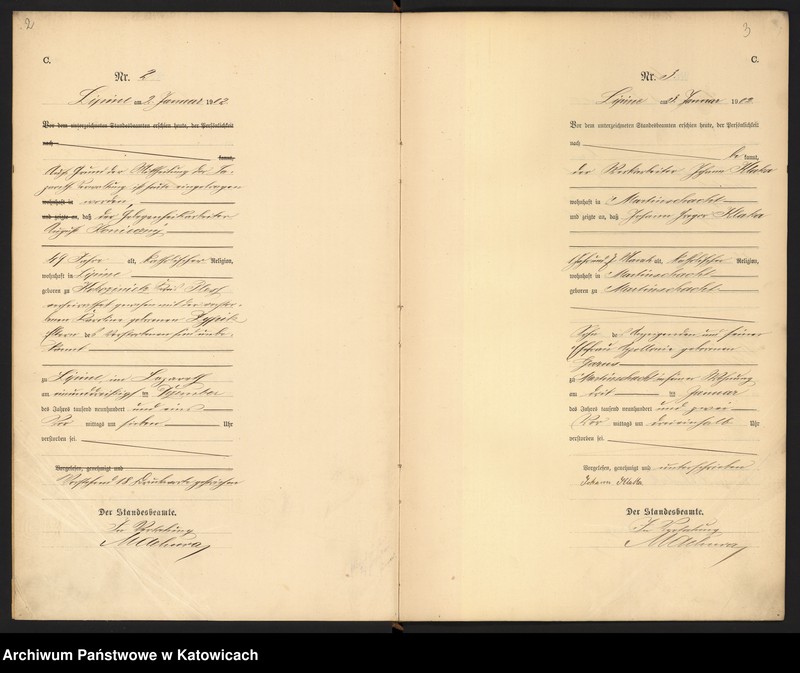 2
C.
Nr. 2
Lipine am 2. Januar 1902
Vor dem unterzeichneten Standesbeamten erschien heute, der Persönlichkeit
nach
kannt,
Auf Grund der Mittheilung der La-
zareth Verwaltung ist heute eingetragen
wohnhaft in worden,
und zeigte an, daß der Gelegenheitsarbeiter
49 Jahre alt, katholischer Religion,
wohnhaft in Lipine
geboren zu
verheirathet gewesen mit der verstor-
benen Karoline geborenen
Eltern des Verstorbenen sind unbe-
kannt
zu Lipine im Lazareth
am einunddreißigsten Dezember
des Jahres tausend neunhundert und eins
Vor mittags um sieben Uhr
verstorben sei.
Vorgelesen, genehmigt und
Vorstehend 18 Druckworte gestrichen
Der Standesbeamte.
In Vertretung
3
C.
Nr. 3.
Lipine am 3. Januar 1902.
Vor dem unterzeichneten Standesbeamten erschien heute, der Persönlichkeit
nach
be kannt,
der Werkarbeiter Johann Klaka
wohnhaft in Martinschacht
und zeigte an, daß Johann Klaka
alt, katholischer Religion,
wohnhaft in Martinschacht
geboren zu Martinschacht
Sohn des Anzeigenden und seiner
Ehefrau Apollonie geborenen
zu Martinschacht in seiner Wohnung
am drit ten Januar
des Jahres tausend neunhundert und zwei
Vor mittags um dreieinhalb Uhr
verstorben sei.
Vorgelesen, genehmigt und unterschrieben
Johann Klaka
Der Standesbeamte.
In Vertretung
Archiwum Państwowe w Katowicach